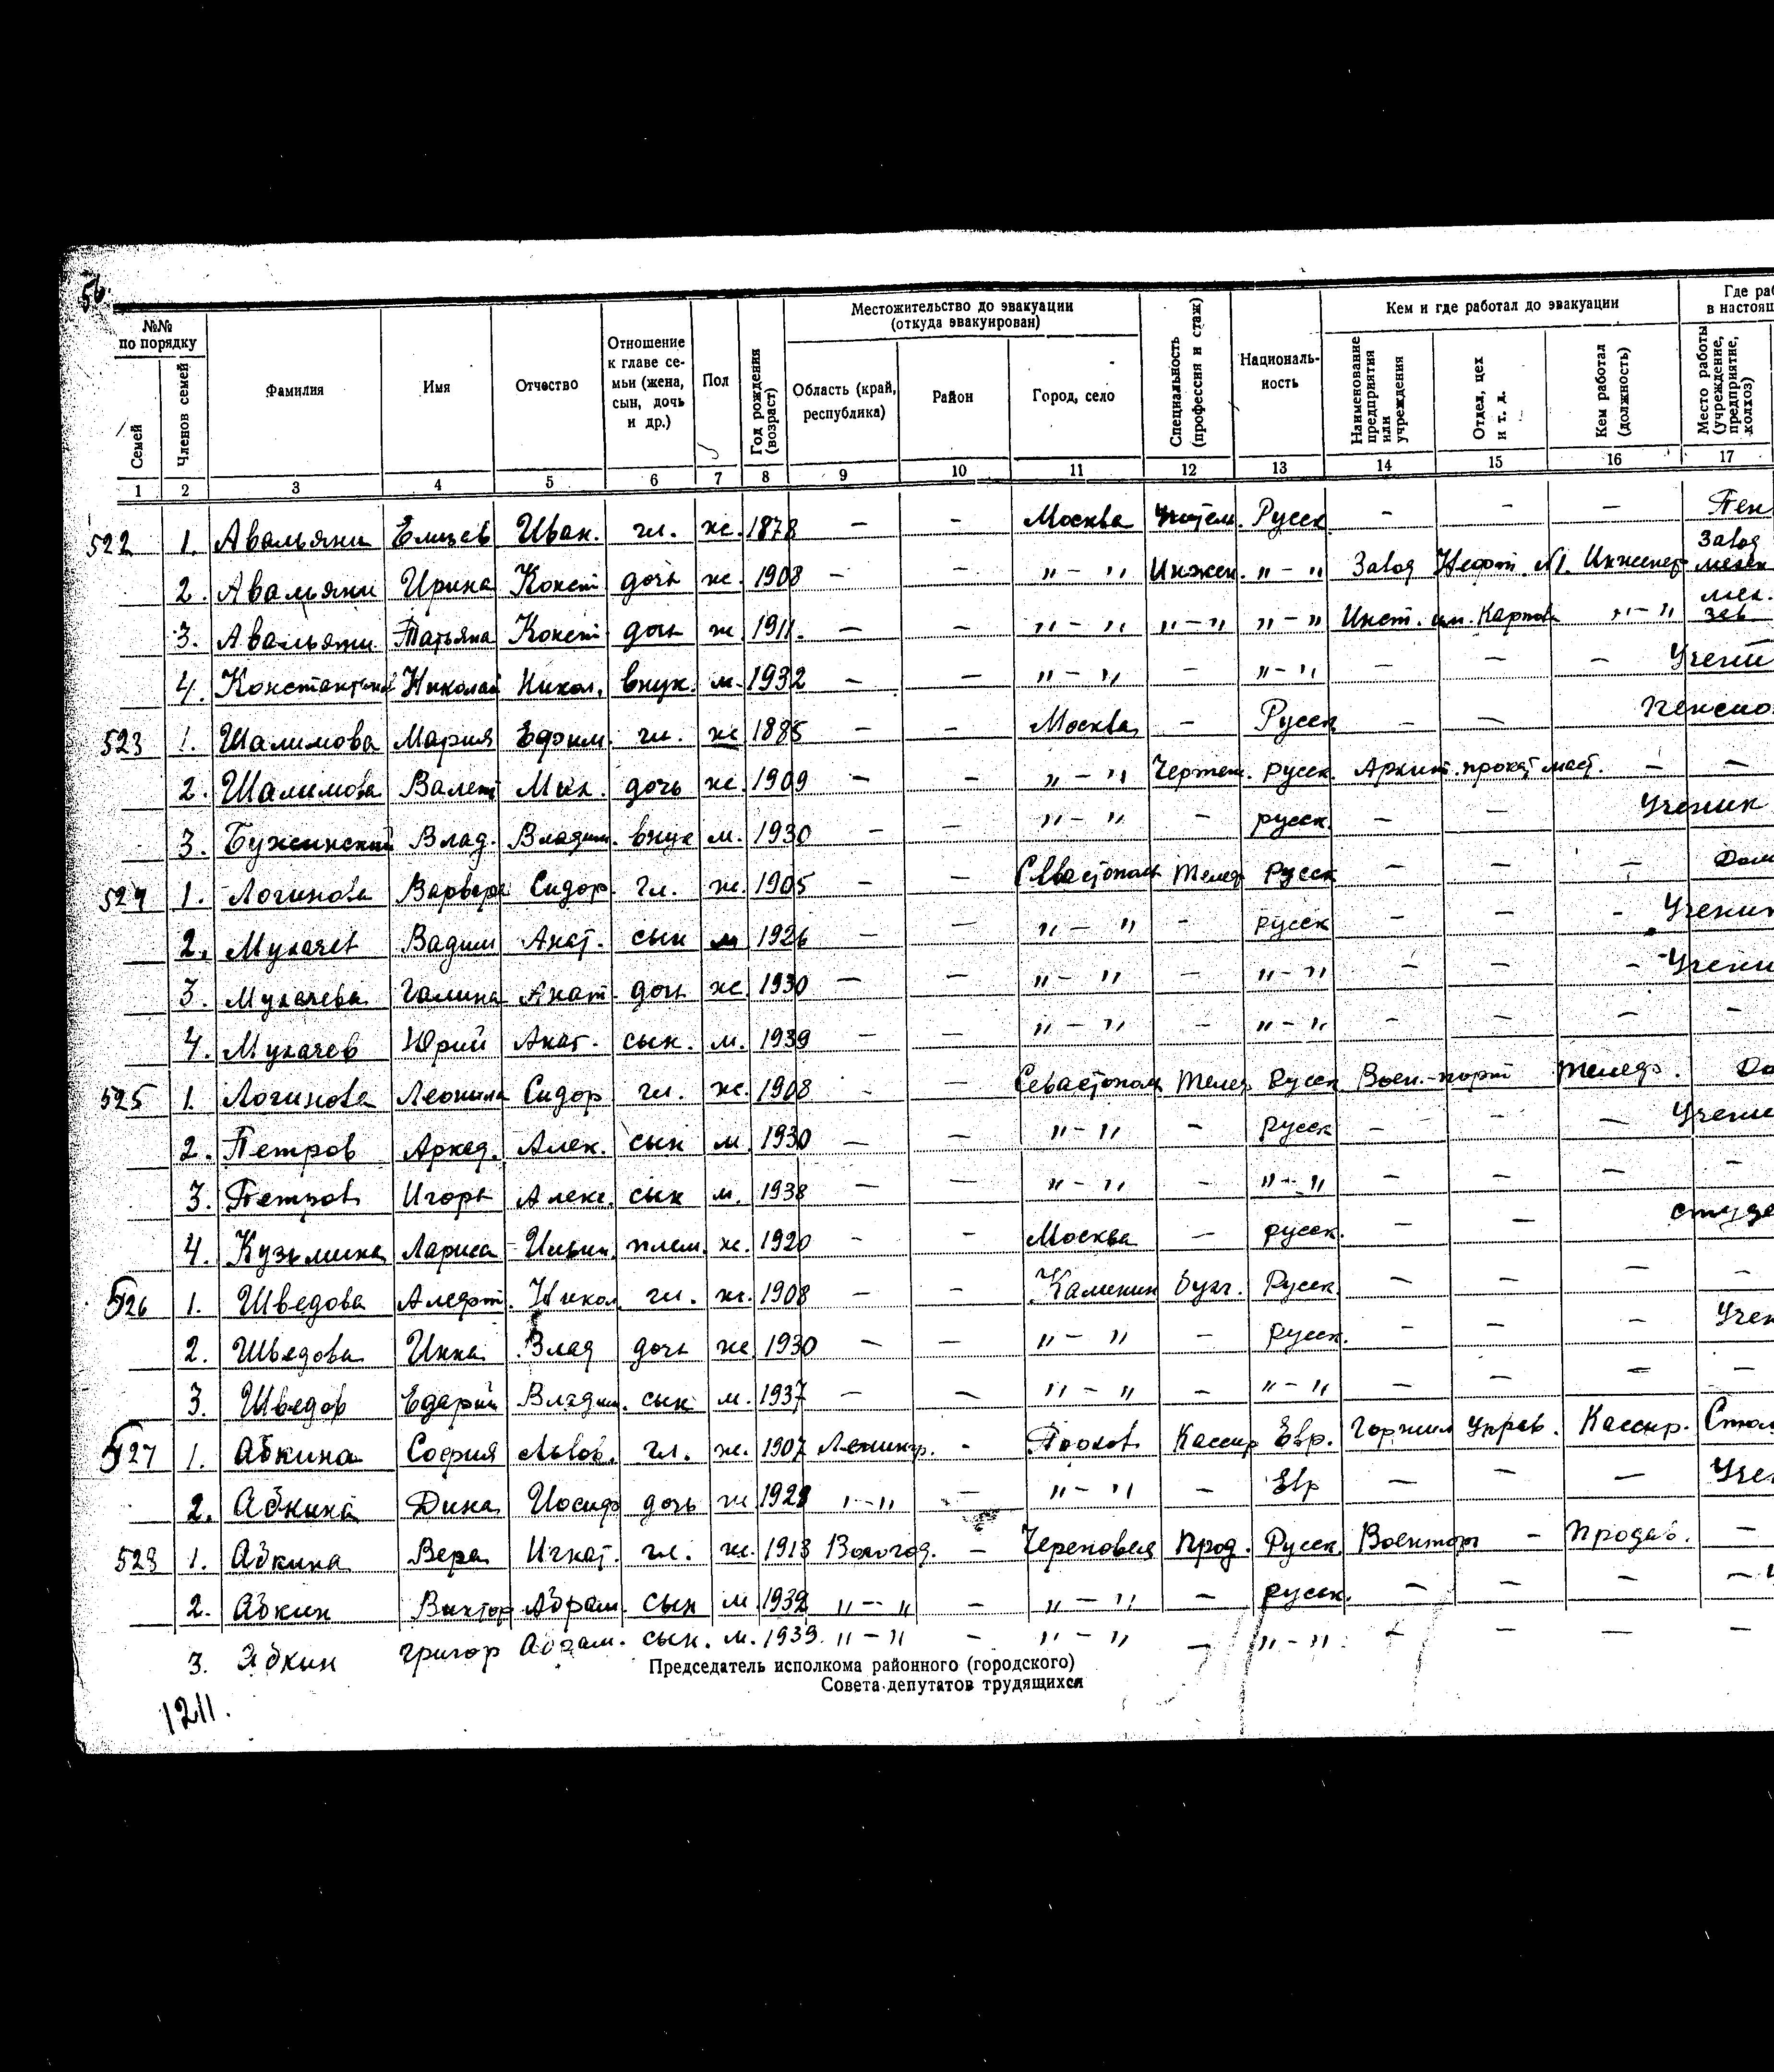 56.
№№ по порядку
Семей
Членов семей
Фамилия
Имя
Отчество
Отношение к главе се-
мьи (жена, сын, дочь и др.)
Пол
Год рождения (возраст)
Местожительство до эвакуации (откуда эвакуирован)
Область (край, республика)
Район
Город, село
Специальность (профессия и стаж)
Националь-
ность
Кем и где работал до эвакуации
Наименование предприятия или учреждения
Отдел, цех и т. д.
Кем работал (должность)
Где раб
в настоящ
Место работы (учреждение, предприятие, колхоз)
1 2 3 4 5 6 7 8 9 10 11 12 13 14 15 16 17
522 1. Авальяни Елизев Иван. гл. ж. 1878 — — Москва Учител. Русск — — — Пен
2. Авальяни Ирина Конст дочь ж. 1908 — — „ — „ Инжен. „ — „ Завод Нефт. №1. Инженер Завод
3. Авальяни Татьяна Конст дочь ж 1911. — — „ — „ „ — „ „ — „ Инст. им. Карпова „ — „ мех. зав
4. Константинов Николай Никол. внук. м. 1932 — — „ — „ — „ — „ — — — Учени
523 1. Шалимова Мария Ефим. гл. ж 1885 — — Москва — Русск — — Пенсио
2. Шалимова Валент Мих. дочь ж. 1909 — — „ — „ Чертеж. русск. Архит. проект маст. — —
3. Бужинский Влад. Владим. внук м. 1930 — — „ — „ — русск. — — Ученик
524 1. Логинова Варвара Сидор. гл. ж. 1905 — — Севастополь Телеф Русск — — — Дом
2. Мухачев Вадим Анат. сын м 1926 — — „ — „ — русск — — - Ученик
3. Мухачева Галина Анат. дочь ж. 1930 — — „ — „ — „ — „ — — — Учени
4. Мухачев Юрий Анат. сын. м. 1939 — — „ — „ — „ — „ — — — —
525 1. Логинова Леонила Сидор гл. ж. 1908 — — Севастополь Телеф Русск Воен.-порт Телеф. До
2. Петров Аркад. Алек. сын м. 1930 — — „ — „ — русск — — — Учени
3. Петров Игорь Алекс. сын м. 1938 — — „ — „ — „ — „ — — — —
4. Кузьмина Лариса Ильин. плем. ж. 1920 — — Москва — русск. — — студе
526 1. Шведова Алефт. Никол. гл. ж. 1908 — — Калинин бухг. Русск — — — —
2. Шведова Инна Влад дочь ж 1930 — — „ — „ — русск. — — — Учен
3. Шведов Владим. сын м. 1937 — — „ — „ — „ — „ — — — —
527 1. Абкина София Львов. гл. ж. 1907 Ленингр. - Кассир Евр. Горжил управ. Кассир. Стол
2. Абкина Дина Иосиф дочь ж 1928 „ — „ — „ — „ — Евр — — — Учен
528 1. Абкина Вера Игнат. гл. ж. 1913 Вологод. — Череповец Прод. Русск. Военторг — Продав. —
2. Абкин Виктор Абрам. сын м. 1932 „ — „ — „ — „ — русск. — — — —
3. Абкин Григор Абрам. сын. м. 1939. „ — „ — „ — „ — „ — „ — — — —
Председатель исполкома районного (городского)
Совета депутатов трудящихся
1211.